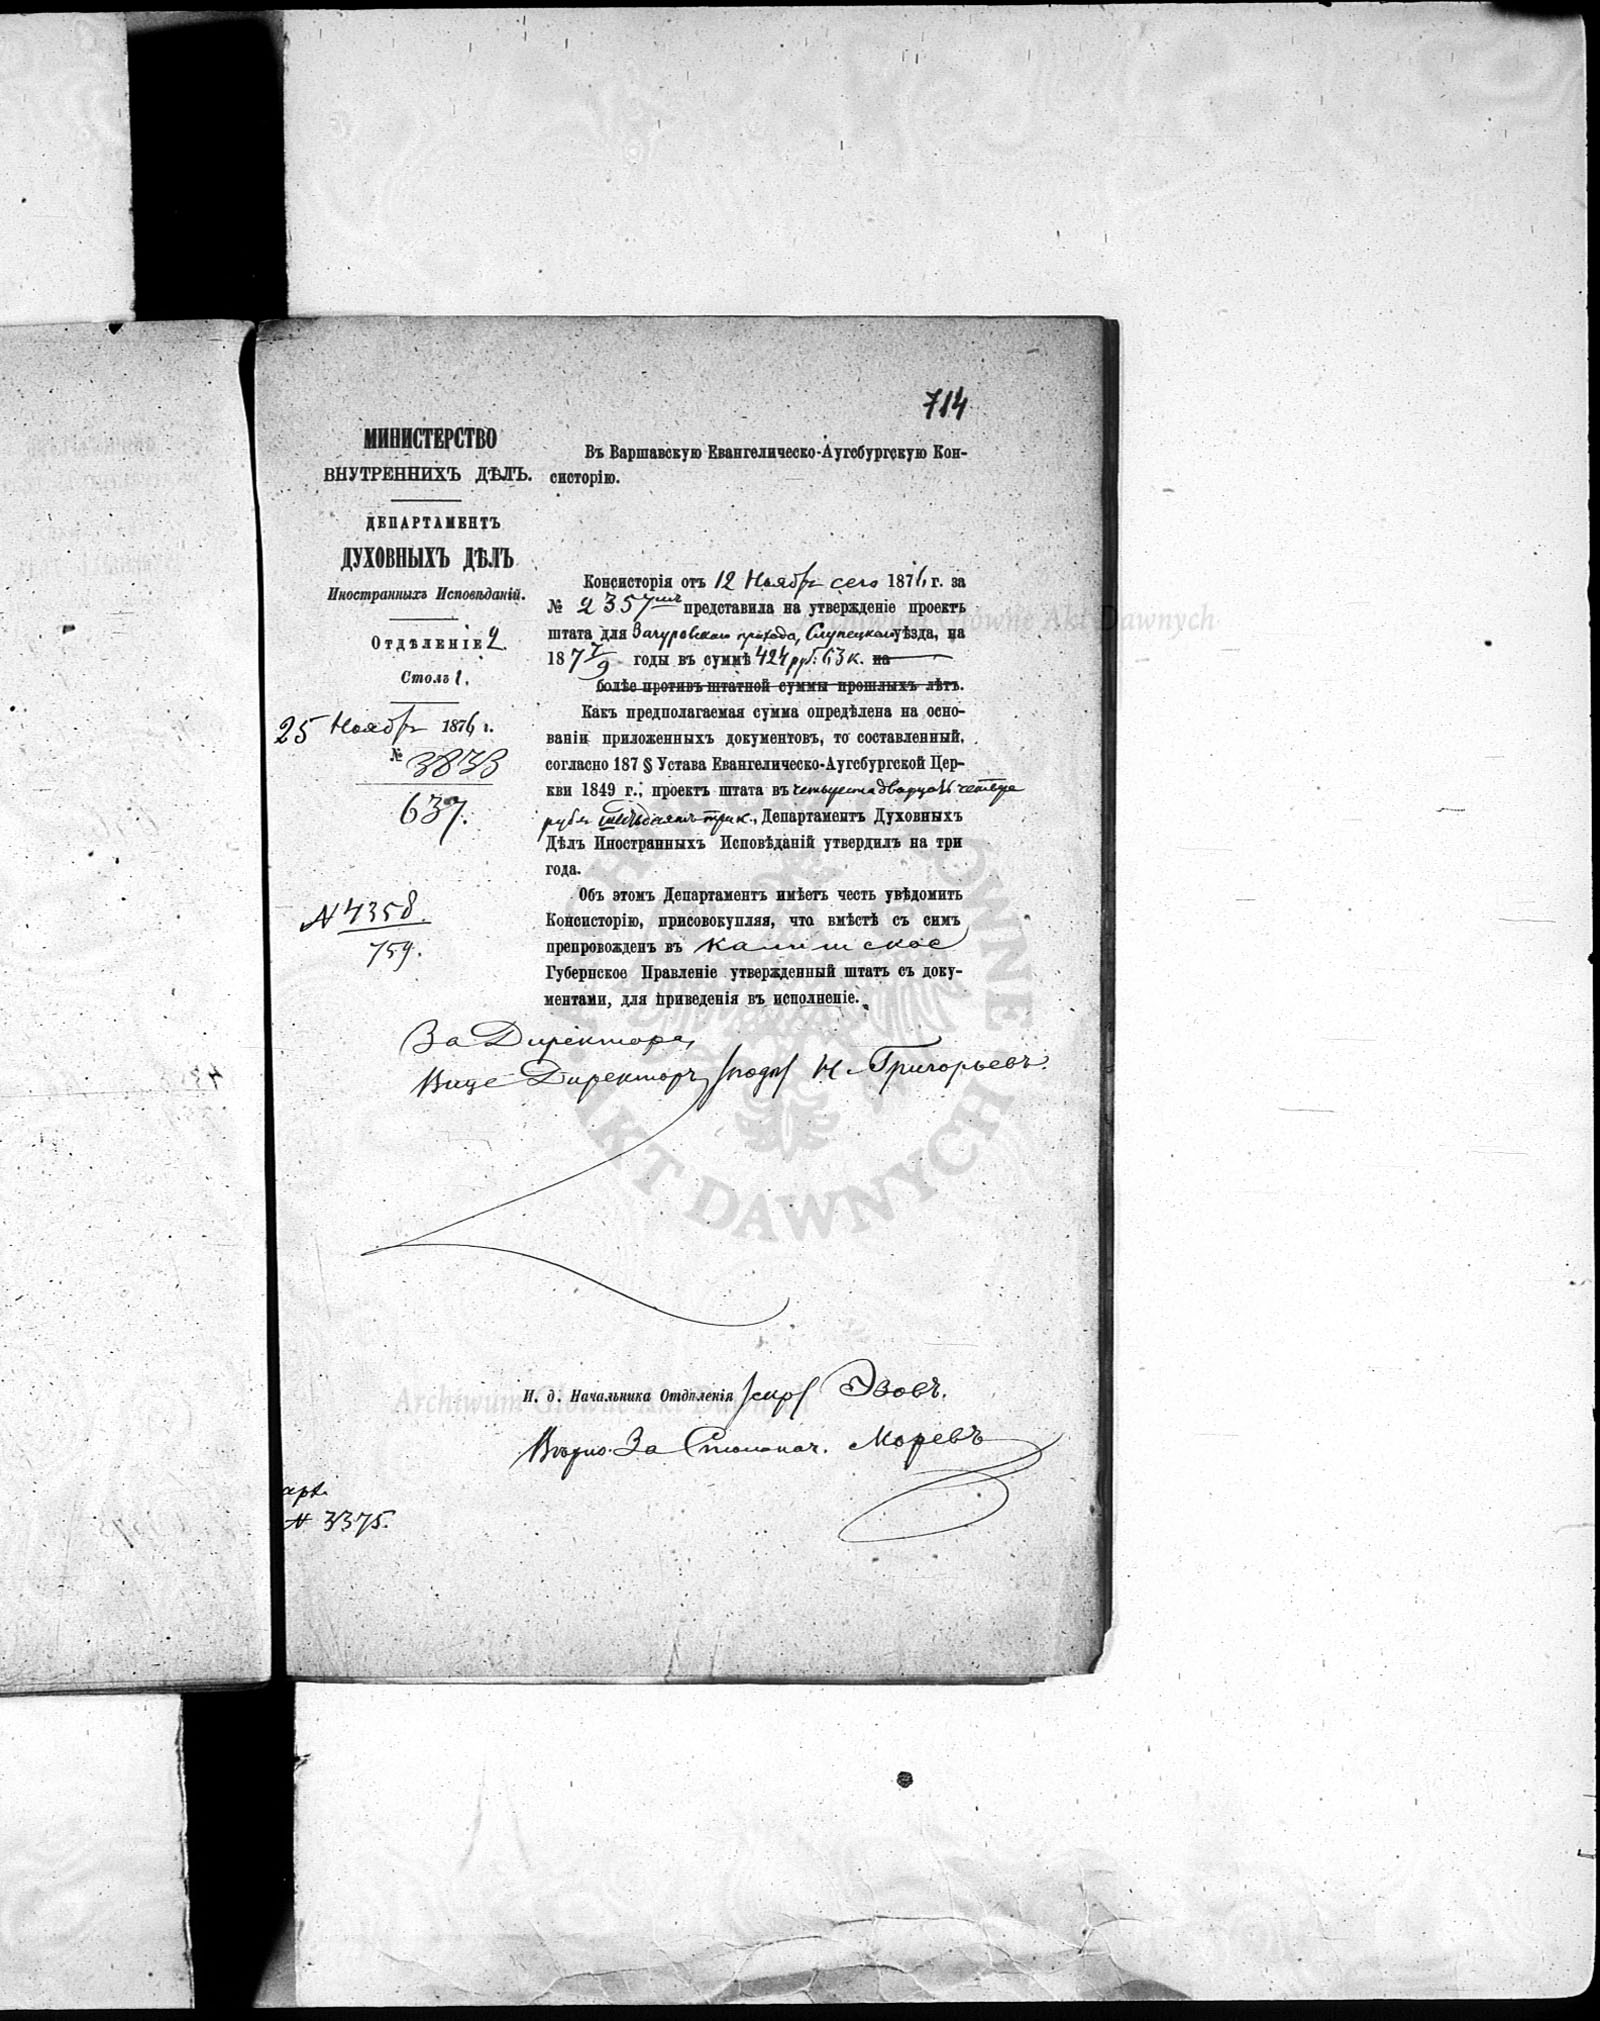 714
МИНИСТЕРСТВО
ВНУТРЕННИХЪ ДѢЛЪ.
ДЕПАРТАМЕНТЪ
ДУХОВНЫХЪ ДѢЛЪ
Иностранныхъ Исповѣданій.
Отдѣленіе 2.
Столъ 1.
25 Ноября 1876 г.
№ 3833
637.
N 4358.
759.
Въ Варшавскую Евангелическо-Аугсбургскую Кон-
систорію.
Консисторія отъ 12 Ноября сего 1876 г. за
№ 2357 представила на утвержденіе проектъ
штата для Загуровскаго прихода, Слупецкаго уѣзда, на
187 7/9 годы въ суммѣ 424 руб. 63 к. на
болѣе противъ штатной суммы прошлыхъ лѣтъ.
Какъ предполагаемая сумма опредѣлена на осно-
ваніи приложенныхъ документовъ, то составленный,
согласно 187 § Устава Евангелическо-Аугсбургской Цер-
кви 1849 г., проектъ штата въ четыреста двадцать четыре
рубл шестьдесятъ три к., Департаментъ Духовныхъ
Дѣлъ Иностранныхъ Исповѣданій утвердилъ на три
года.
Объ этомъ Департаментъ имѣетъ честь увѣдомить
Консисторію, присовокупляя, что вмѣстѣ съ симъ
препровожденъ въ Калишское
Губернское Правленіе утвержденный штатъ съ доку-
ментами, для приведенія въ исполненіе.
За Директора,
Вице Директоръ /подп/ Н Григорьевъ.
И. д. Начальника Отдѣленія /скр/ Эзовъ.
Вѣрно. За Столонач. Моревъ
N 3375.
Archiwum Główne Akt Dawnych
Archiwum Główne Akt Dawnych
ARCHIWUM GŁÓWNE AKT DAWNYCH